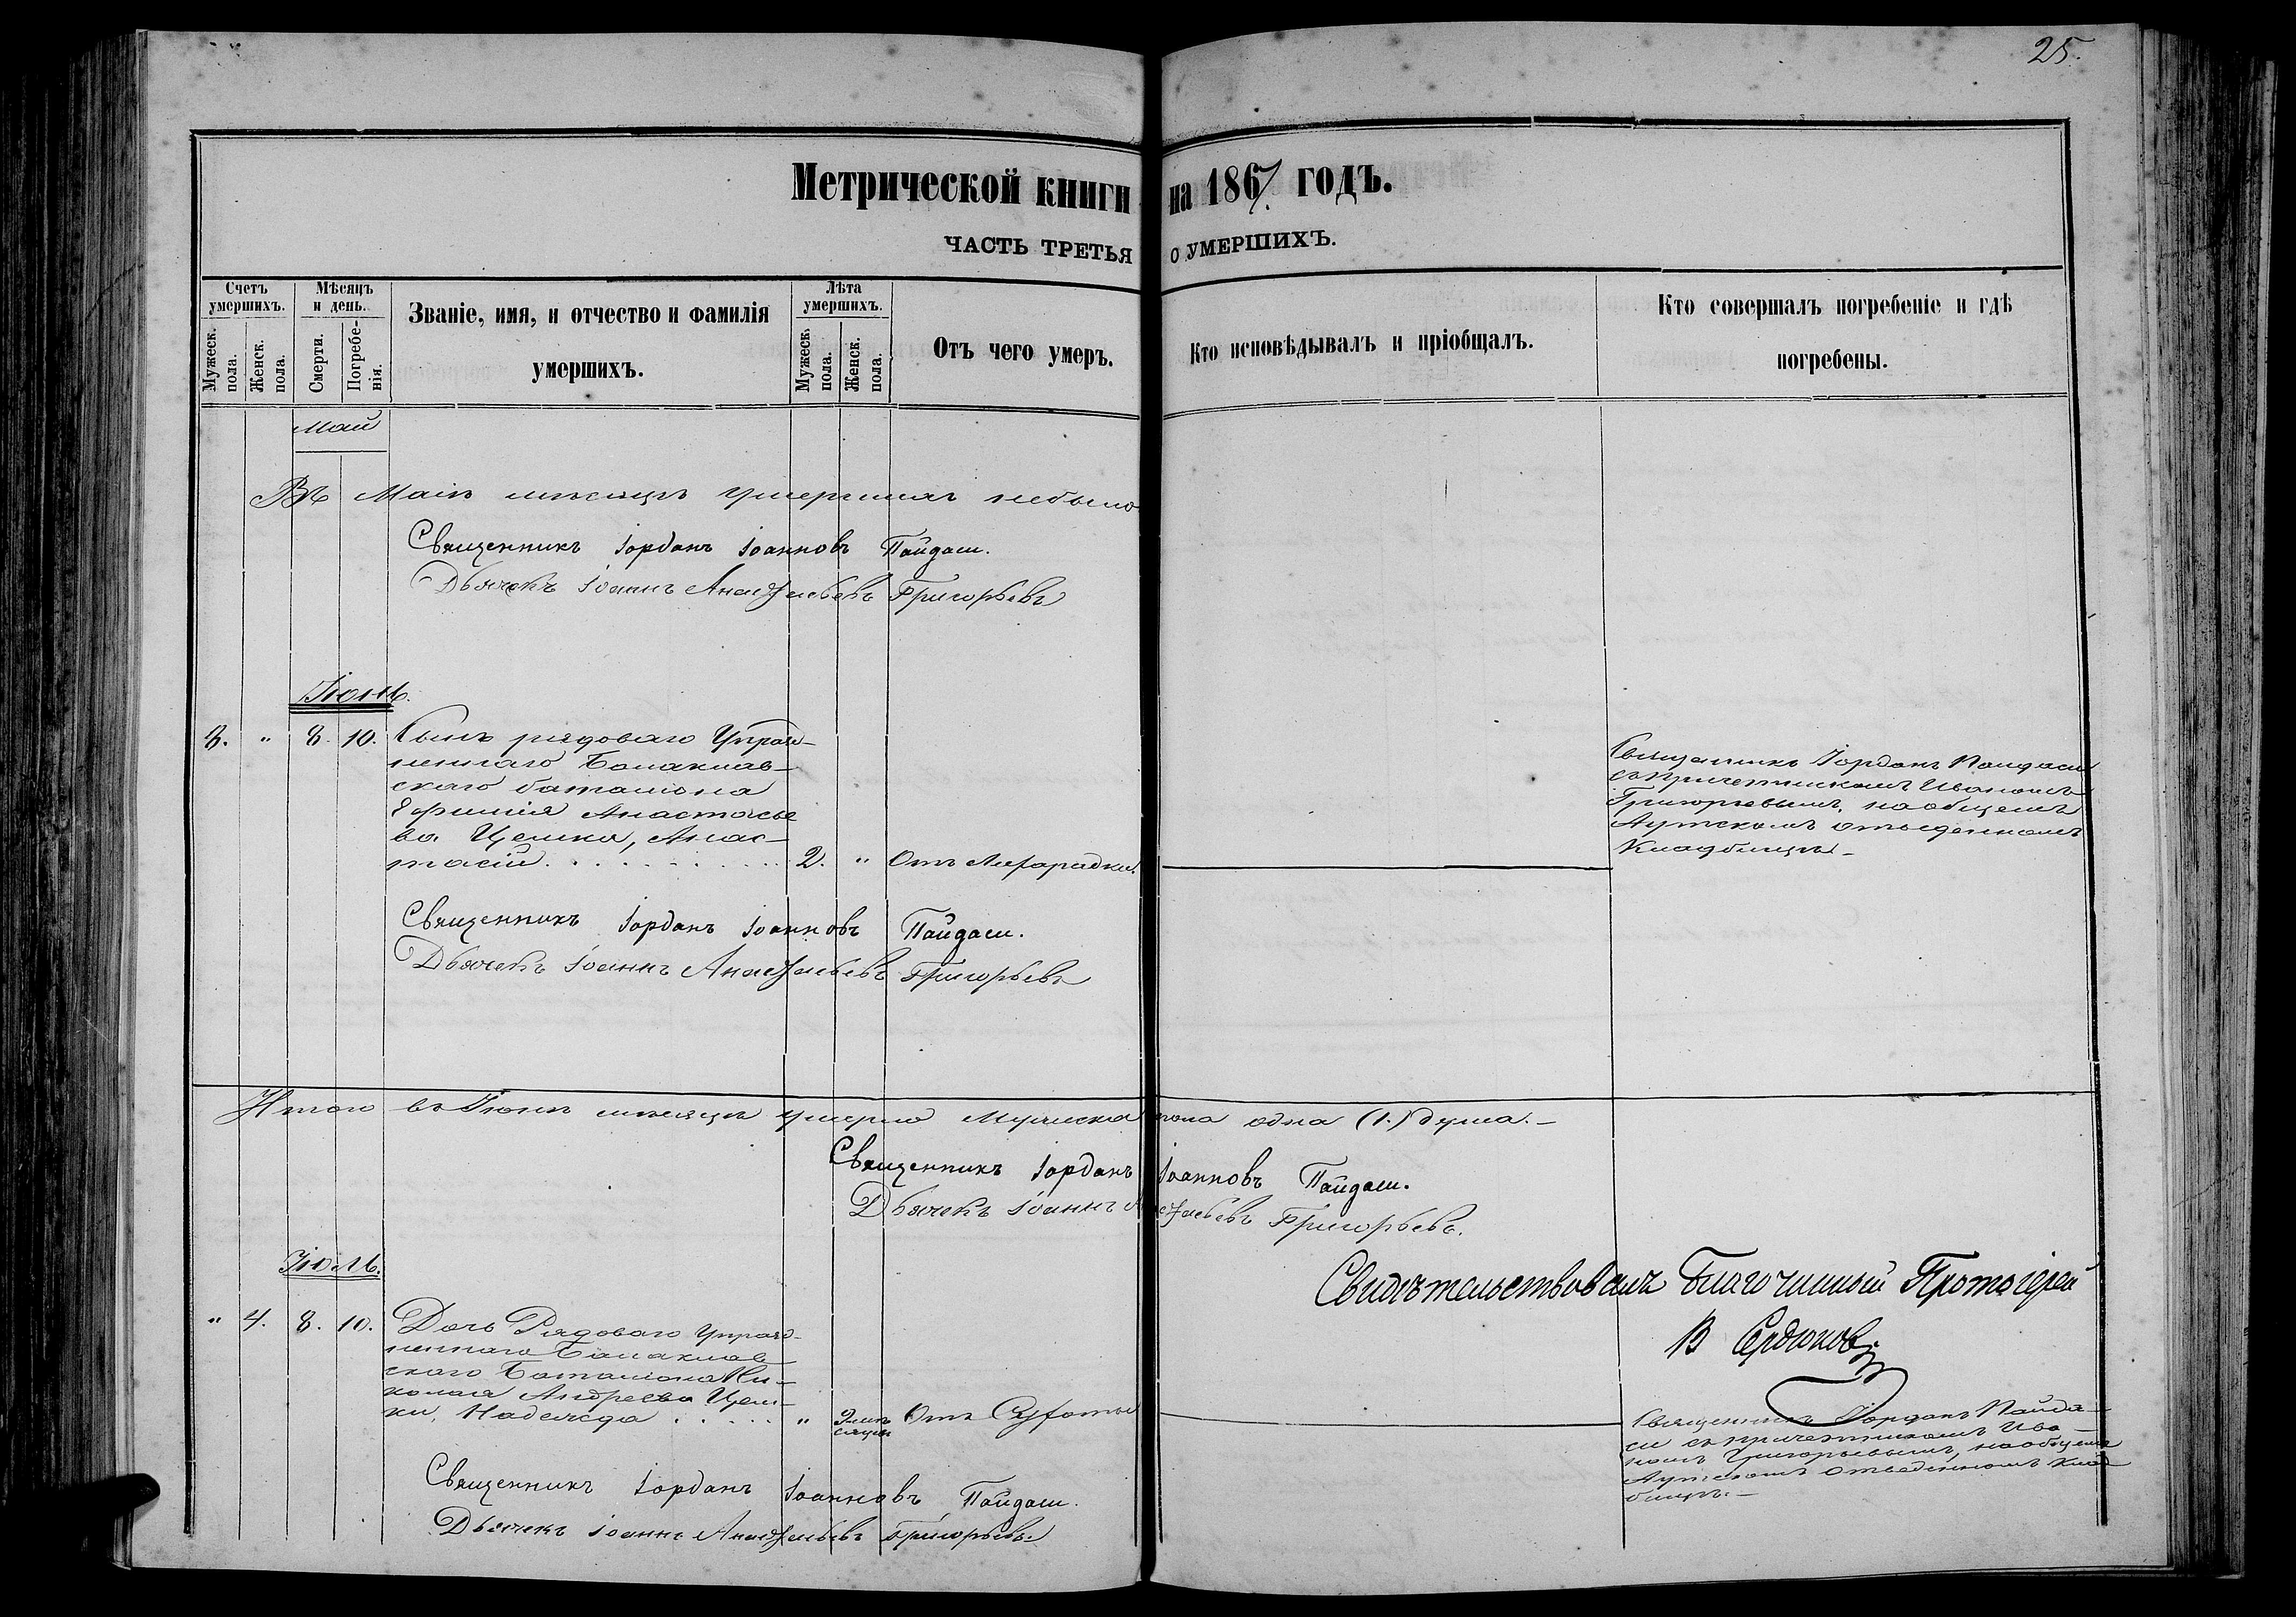 25.
Метрической книги на 1867. годъ.
ЧАСТЬ ТРЕТЬЯ О УМЕРШИХЪ.
Счетъ умершихъ.
Мужеск. пола.
Женск. пола.
Мѣсяцъ и день.
Смерти.
Погребе-нія.
Званіе, имя, и отчество и фамилія
умершихъ.
Лѣта умершихъ.
Мужеск. пола.
Женск. пола.
Отъ чего умеръ.
Кто исповѣдывалъ и пріобщалъ.
Кто совершалъ погребеніе и гдѣ
погребены.
Май
Въ Маіѣ мѣсяцѣ умершихъ небыло
Священникъ Іорданъ Іоанновъ Пайдаси.
Дьячекъ Іоаннъ Григорьевъ
Іюнь.
8. " 8. 10. Сынъ рядоваго Упразд-
неннаго Балаклав-
скаго баталіона
Ефимія Анастасье
ва Цемка, Анас-
тасій. 2. " Отъ
Священникъ Іорданъ Пайдаси
съ причетникомъ Иваномъ
Григорьевымъ, на общемъ
Аутскомъ отведенномъ
Кладбищѣ.-
Священникъ Іорданъ Іоанновъ Пайдаси.
Дьячекъ Іоаннъ Григорьевъ
Итого въ Іюнѣ мѣсяцѣ умерло Мужеска пола одна (1.) душа.-
Священникъ Іорданъ Іоанновъ Пайдаси.
Дьячекъ Іоаннъ Григорьевъ.
Іюль.
Свидѣтельствовалъ Благочинный Протоіерей
В Сердюковъ
" 4. 8. 10. Дочь Рядоваго Упразд-
неннаго Балаклав-
скаго Баталіона Ни-
колая Андреева Цем-
ки, Надежда "
Священникъ Іорданъ Пайда-
си съ причетникомъ Ива-
номъ Григорьевымъ, на общемъ
Аутскомъ отведенномъ клад-
бищѣ.-
Священникъ Іорданъ Іоанновъ Пайдаси.
Дьячекъ Іоаннъ Григорьевъ.